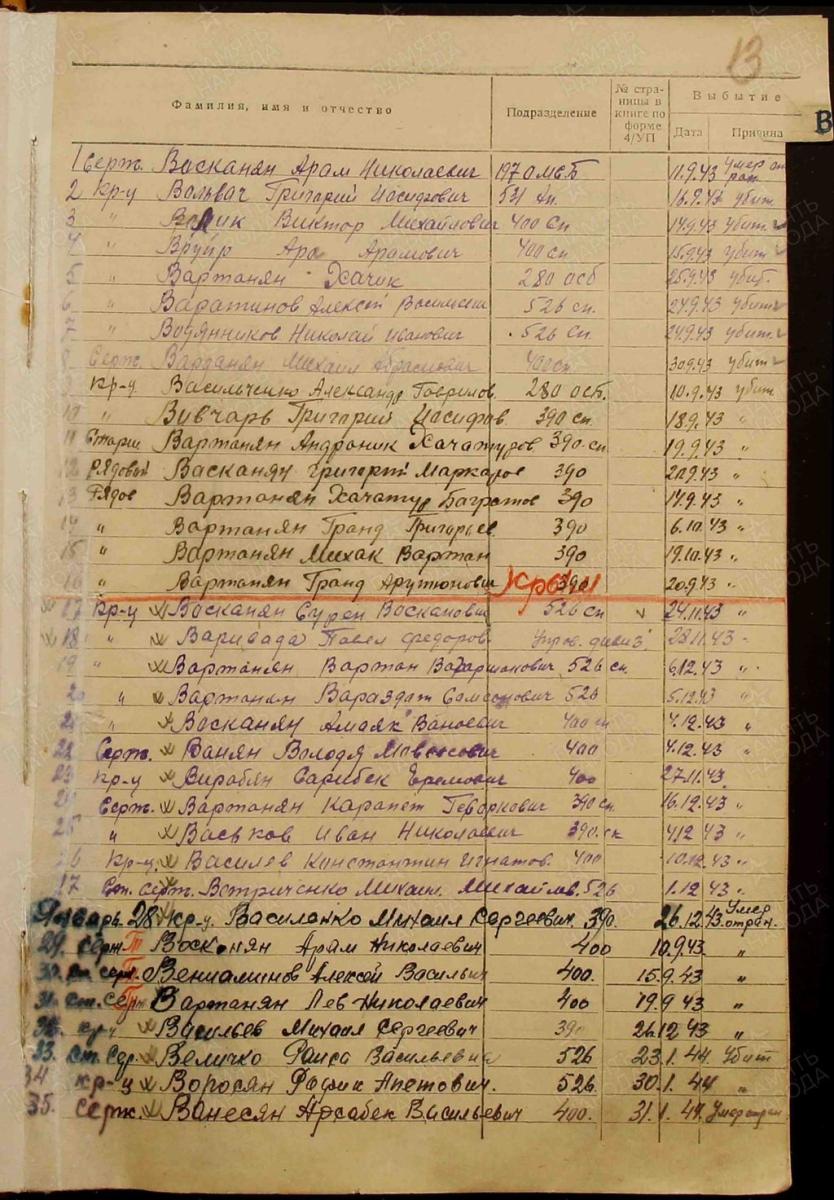 13
Фамилия, имя и отчество Подразделение № страницы в книге по форме 4/УП Выбытие Дата Причина
В
1 серж. Восканян Арам Николаевич 197 омсб 11.9.43 умер от ран
2 кр-ц Вольвач Григорий Иосифович 531 ап. 16.9.43 убит
3 " Виктор Михайлович 400 сп 14.9.43 убит
4 " Вруйр Ара Арамович 400 сп 15.9.43 убит
5 " Вартанян Хачик 280 осб 25.9.43 убит.
6 " Алексей 526 сп. 24.9.43 убит
7 " Водянников Николай Иванович 526 сп. 24.9.43 убит
8 Серж. Варданян Михаил 400 сп. 30.9.43 убит
9 кр-ц Васильченко Александр Гаврилов. 280 осб. 10.9.43 убит
10 " Вивчарь Григорий Иосифов. 390 сп 18.9.43 "
11 Старш Вартанян Андроник Хачатуров. 390 сп 19.9.43 "
12 Рядовый Восканян Григорий Маркаров 390 20.9.43 "
13 Рядов Вартанян Хачатур Багратов 390 14.9.43 "
14 " Вартанян Гранд Григорьев 390 6.10.43 "
15 " Вартанян Михак Вартан 390 19.10.43 "
16 " Вартанян Гранд Арутюнович 390 20.9.43 "
Крым
17 кр-ц Восканян Сурен Восканович 526 сп v 24.11.43 "
18 " Павел Федоров. Управ. дивиз. 28.11.43 "
19 " Вартанян Вартан 526 сп. 6.12.43 "
20 " Вартанян Вараздат Самсонович 526 5.12.43 "
21 " Восканян Амаяк Ваноевич 400 сп 4.12.43 "
22 Серж. Ванян Володя Мовсесович 400 4.12.43 "
23 кр-ц Вирабян Сарибек Еремович 400 27.11.43 "
24 Серж. Вартанян Карапет Геворкович 390 сп 16.12.43 "
25 " Васьков Иван Николаевич 390 сп 4.12.43 "
26 кр-ц. Василев Константин Игнатов. 400 10.12.43 "
27 Ст. серж. Встриченко Михаил Михайлов. 526 1.12.43 "
Январь. 28 кр-ц. Василенко Михаил Сергеевич. 390. 26.12.43. Умер от ран.
29. серж. Восконян Арам Николаевич 400 10.9.43. "
30. ст. серж. Вениаминов Алексей Васильич 400. 15.9.43 "
31. ст. серж Вартанян Лев Николаевич 400 19.9.43 "
32. кр-ц Васильев Михаил Сергеевич 390 26.12.43 "
33. Ст. Сер. Величко Раиса Васильевна 526 23.1.44. Убит
34 кр-ц Воросян Рафик Апетович. 526. 30.1.44 "
35. серж. Ванесян Арсабек Васильевич 400. 31.1.44. Умер от ран